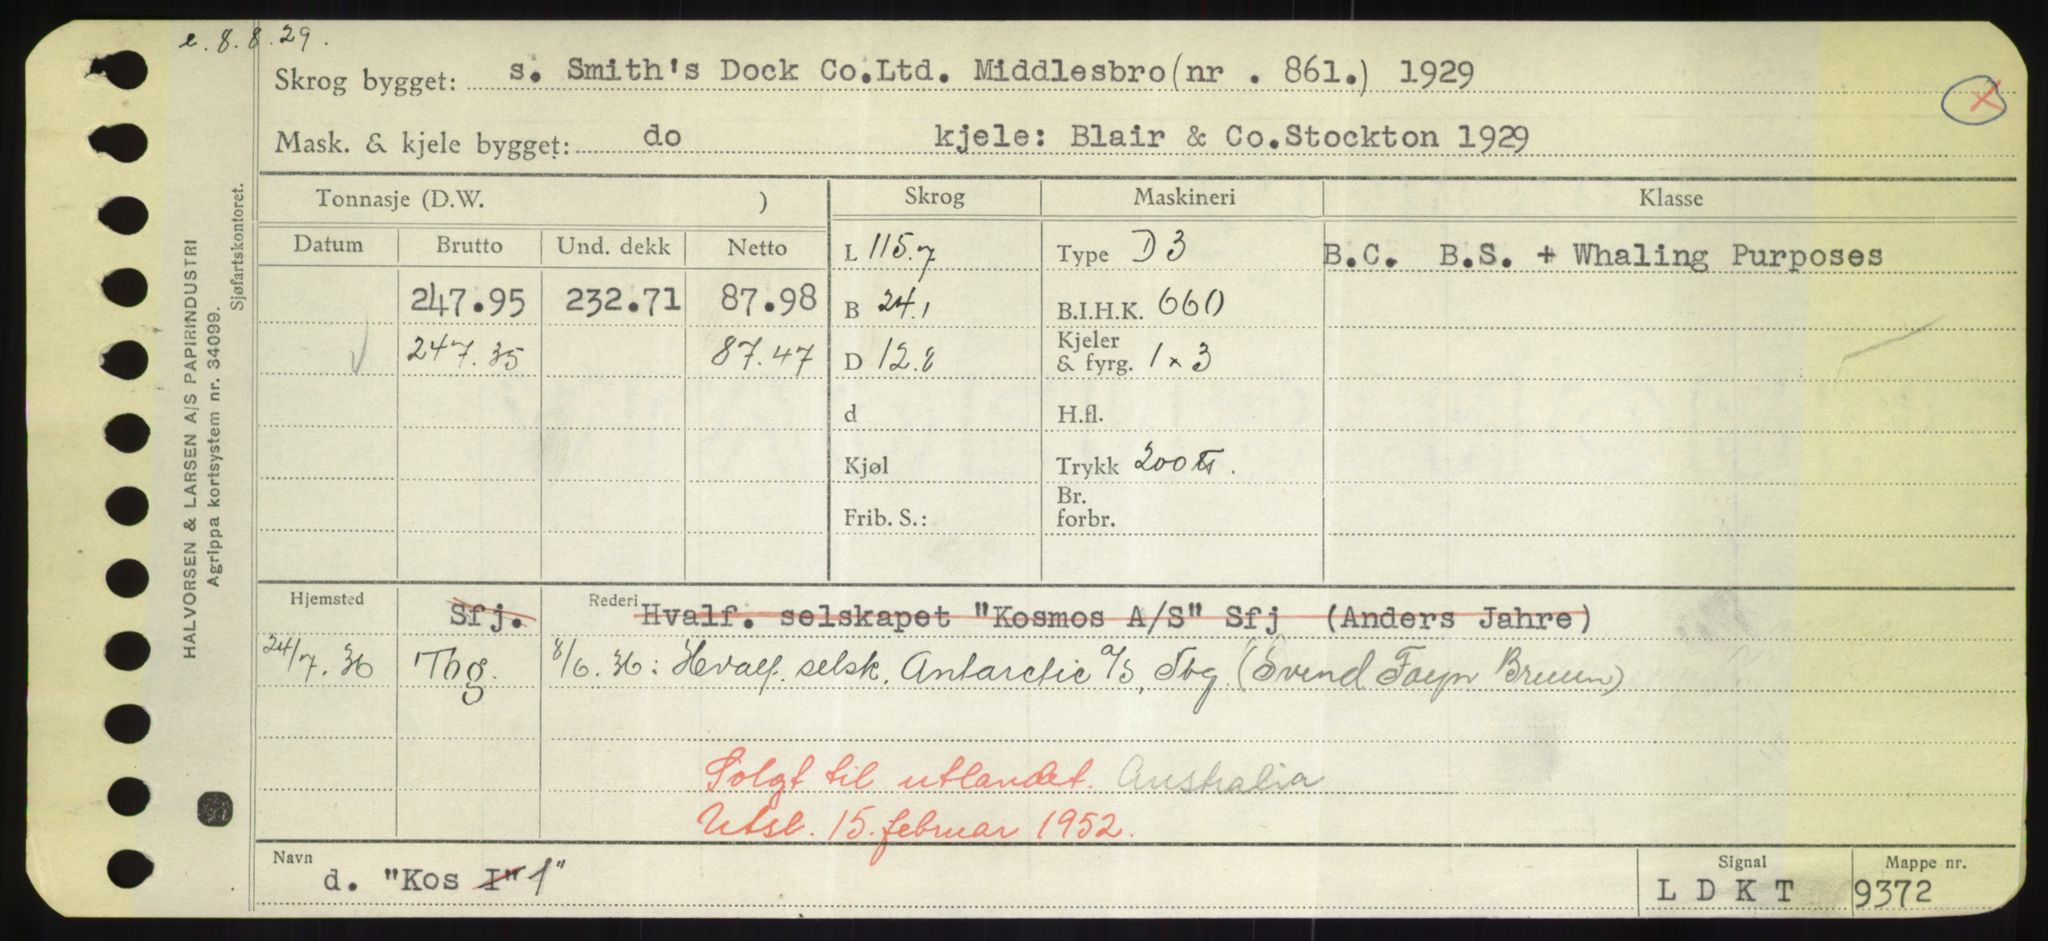 e. 8. 8. 29.
Skrog bygget: s. Smith's Dock Co.Ltd. Middlesbro(nr . 861.) 1929
Mask. & kjele bygget: do kjele: Blair & Co.Stockton 1929
Tonnasje (D.W. ) Skrog Maskineri Klasse
Datum Brutto Und. dekk Netto L 115.7 Type D 3 B.C. B.S. + Whaling Purposes
247.95 232.71 87.98 B 24.1 B.I.H.K. 660
247.35 87.47 D 12.8 Kjeler & fyrg. 1 x 3
d H.fl.
Kjøl Trykk 200 lbs.
Frib. S.: Br. forbr.
Hjemsted Sfj. Rederi Hvalf. selskapet "Kosmos A/S" Sfj (Anders Jahre)
24/7. 36 Tbg. 8/6. 36: Hvalf. selsk. Antarctic A/S, Tbg (Svend Foyn Bruun)
Solgt til utlandet. Australia
Utsl. 15. februar 1952.
Navn d. "Kos I" 1" Signal L D K T Mappe nr. 9372
HALVORSEN & LARSEN A/S PAPIRINDUSTRI
Agrippa kortsystem nr. 34099.
Sjøfartskontoret.